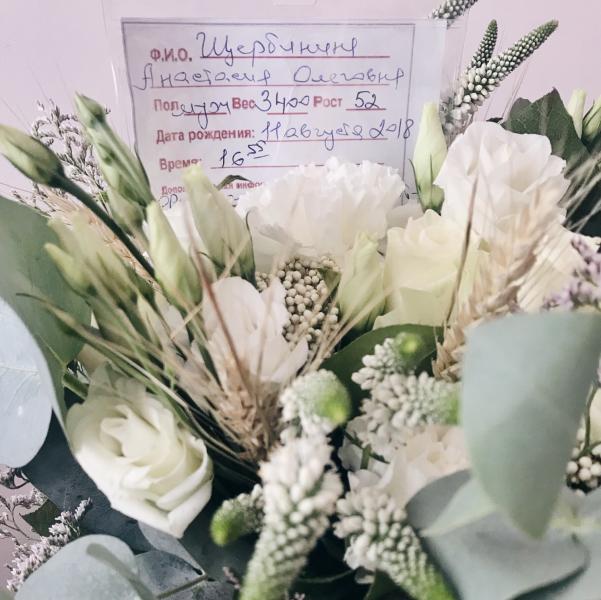 Ф.И.О. Щербинина
Анастасия Олеговна
Пол муж Вес 3400 Рост 52
Дата рождения: 11 августа 2018
Время: 16 55